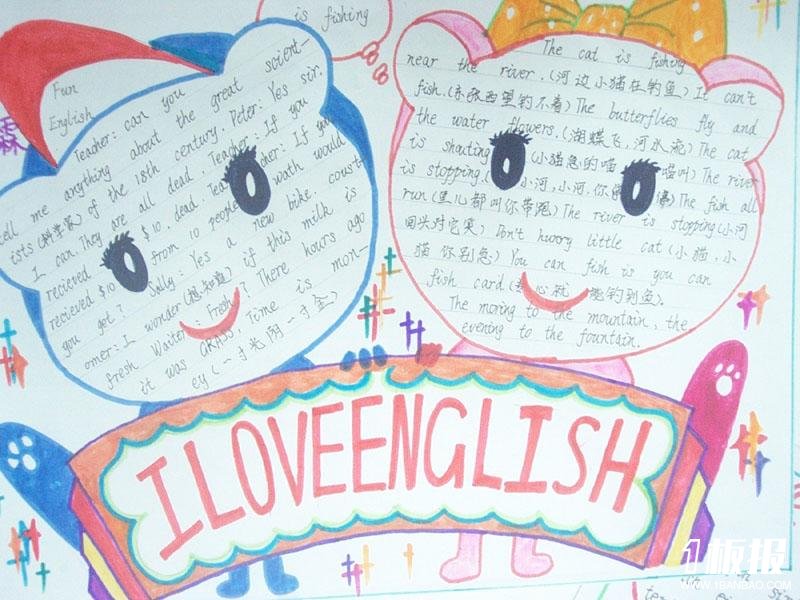 is fishing
Fun
English
Teacher: can you
tell me anything about the great scient-
ists (科学家) of the 18th century. Peter: Yes sir.
I can. They are all dead. Teacher: If you
recieved $10 from 10 people
recieved $10. dead. Teacher: If you
you got? Sally: Yes a new bike cous-
omer: I wonder (想知道) if this milk is
fresh Waiter: Fresh? There hours ago
it was GRASS, Time is mon-
ey (一寸光阴一寸金)
The cat is fishing
near the river. (河边小猫在钓鱼) It can't
fish. (东张西望钓不着) The butterflies fly and
the water flowers. (湖蝶飞,河水流) The cat
is shouting (小猫急的喵喵叫) The river
is stopping. (小河,小河,你 The fish all
run (鱼儿都叫你带跑) The river is stopping (小河
回头对它笑) Don't hurry little cat (小猫,小
猫你别急) You can fish is you can
fish card 能钓到鱼).
The moring to the mountain, the
evening to the fountain.
I LOVE ENGLISH
霖
1板报
WWW.1BANBAO.COM